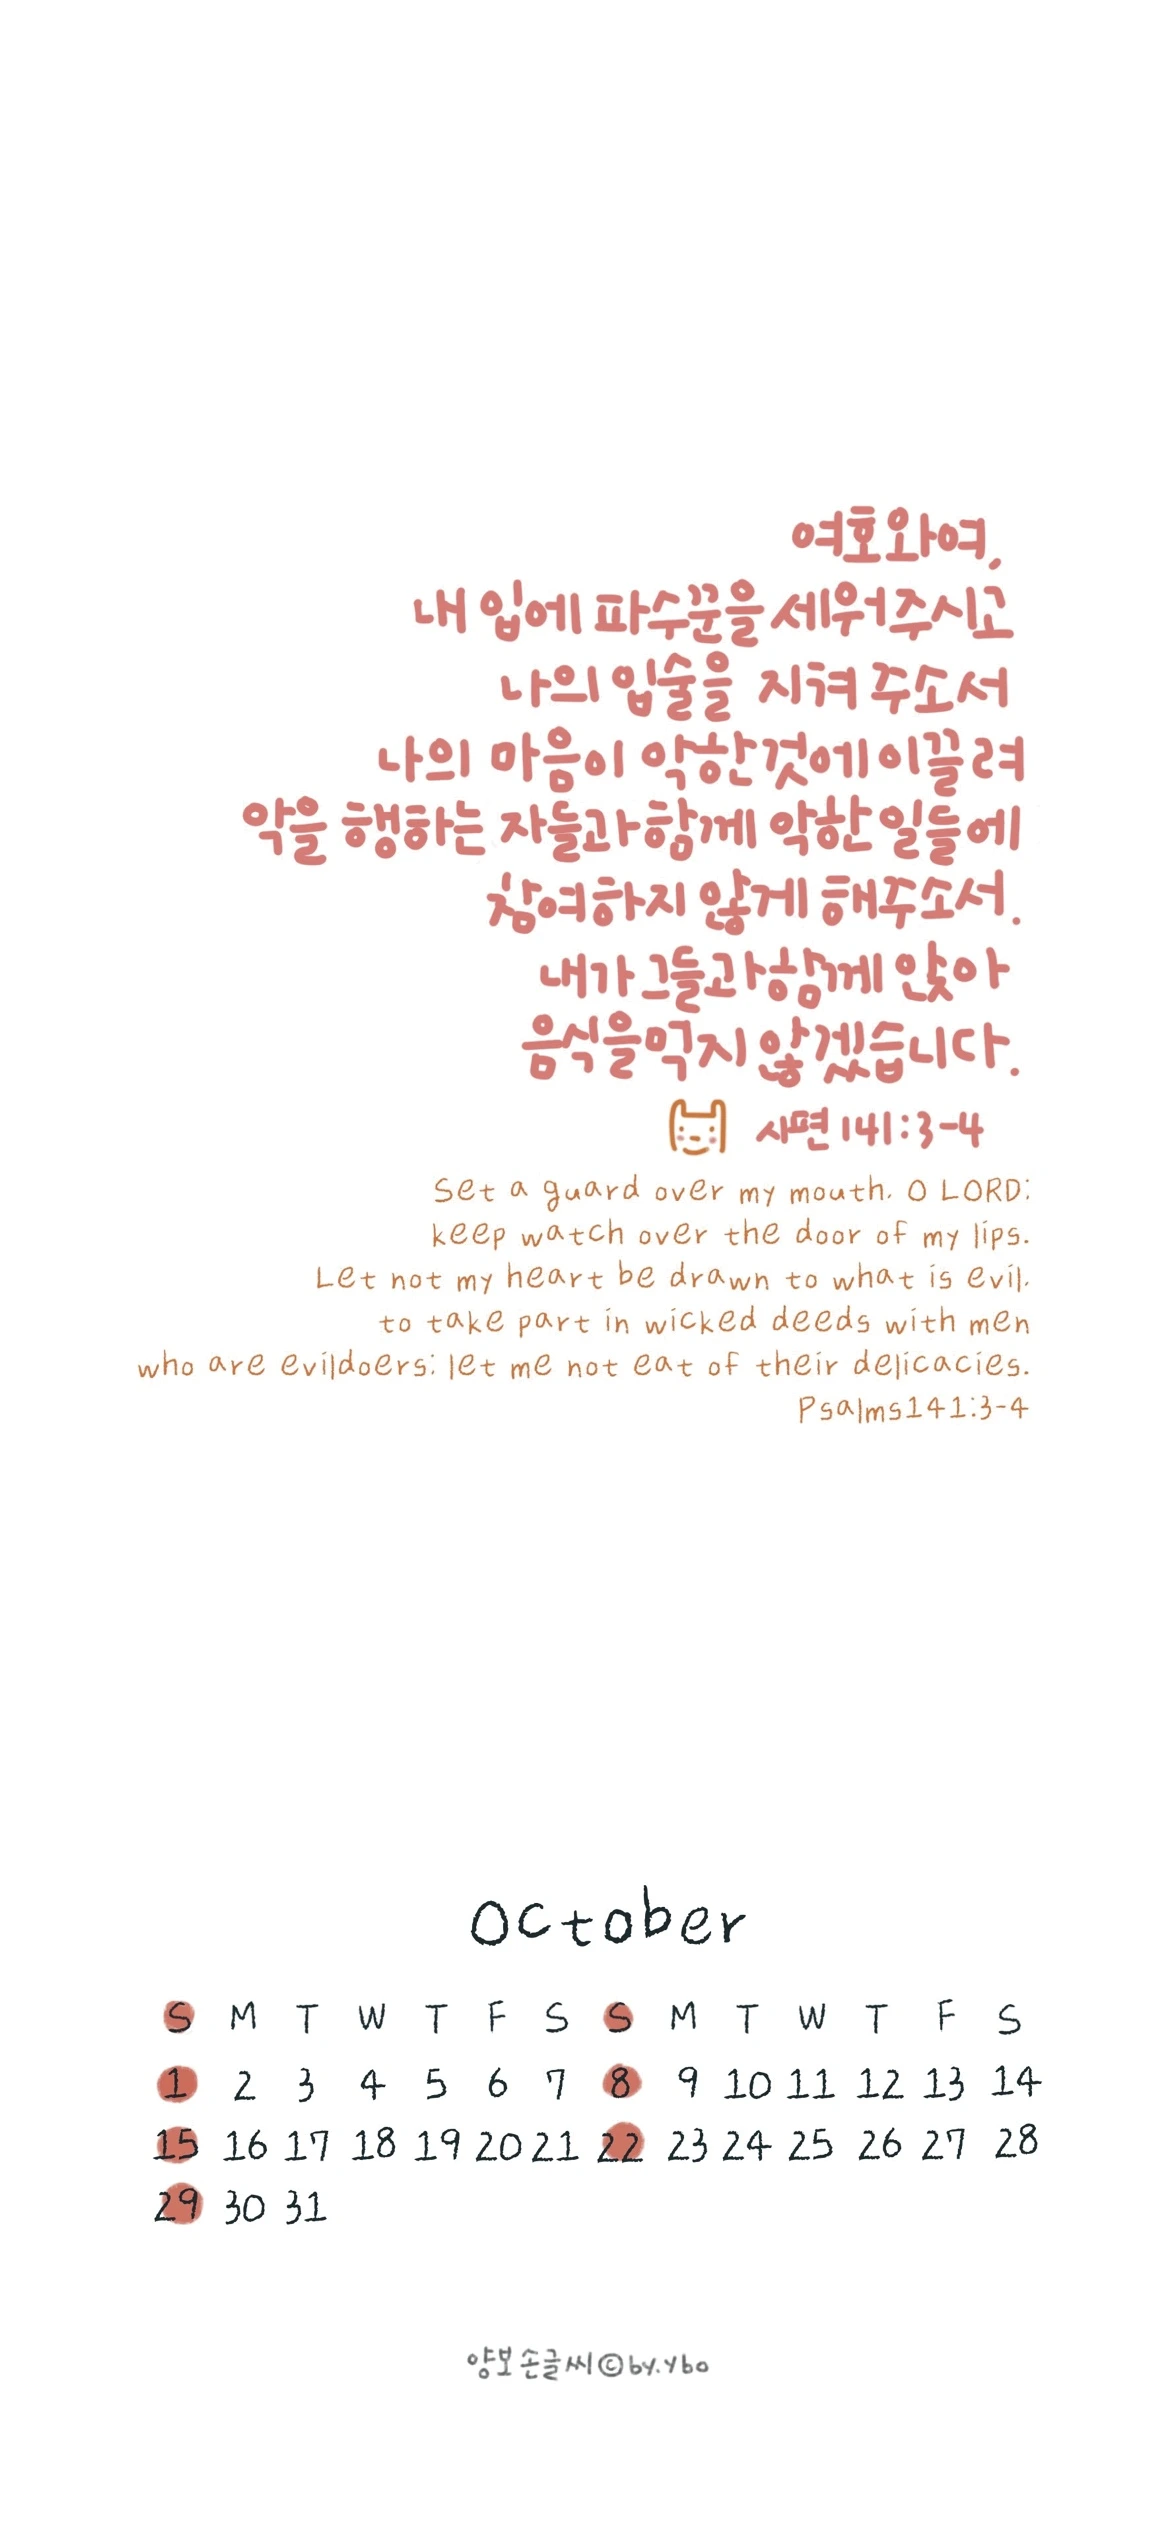 여호와여,
내 입에 파수꾼을 세워주시고
나의 입술을 지켜 주소서
나의 마음이 악한것에 이끌려
악을 행하는 자들과 함께 악한 일들에
참여하지 않게 해주소서.
내가 그들과 함께 앉아
음식을 먹지 않겠습니다.
시편 141:3-4
Set a guard over my mouth, O LORD;
keep watch over the door of my lips.
Let not my heart be drawn to what is evil,
to take part in wicked deeds with men
who are evildoers; let me not eat of their delicacies.
Psalms141:3-4
October
S M T W T F S S M T W T F S
1 2 3 4 5 6 7 8 9 10 11 12 13 14
15 16 17 18 19 20 21 22 23 24 25 26 27 28
29 30 31
양보손글씨©by.ybo